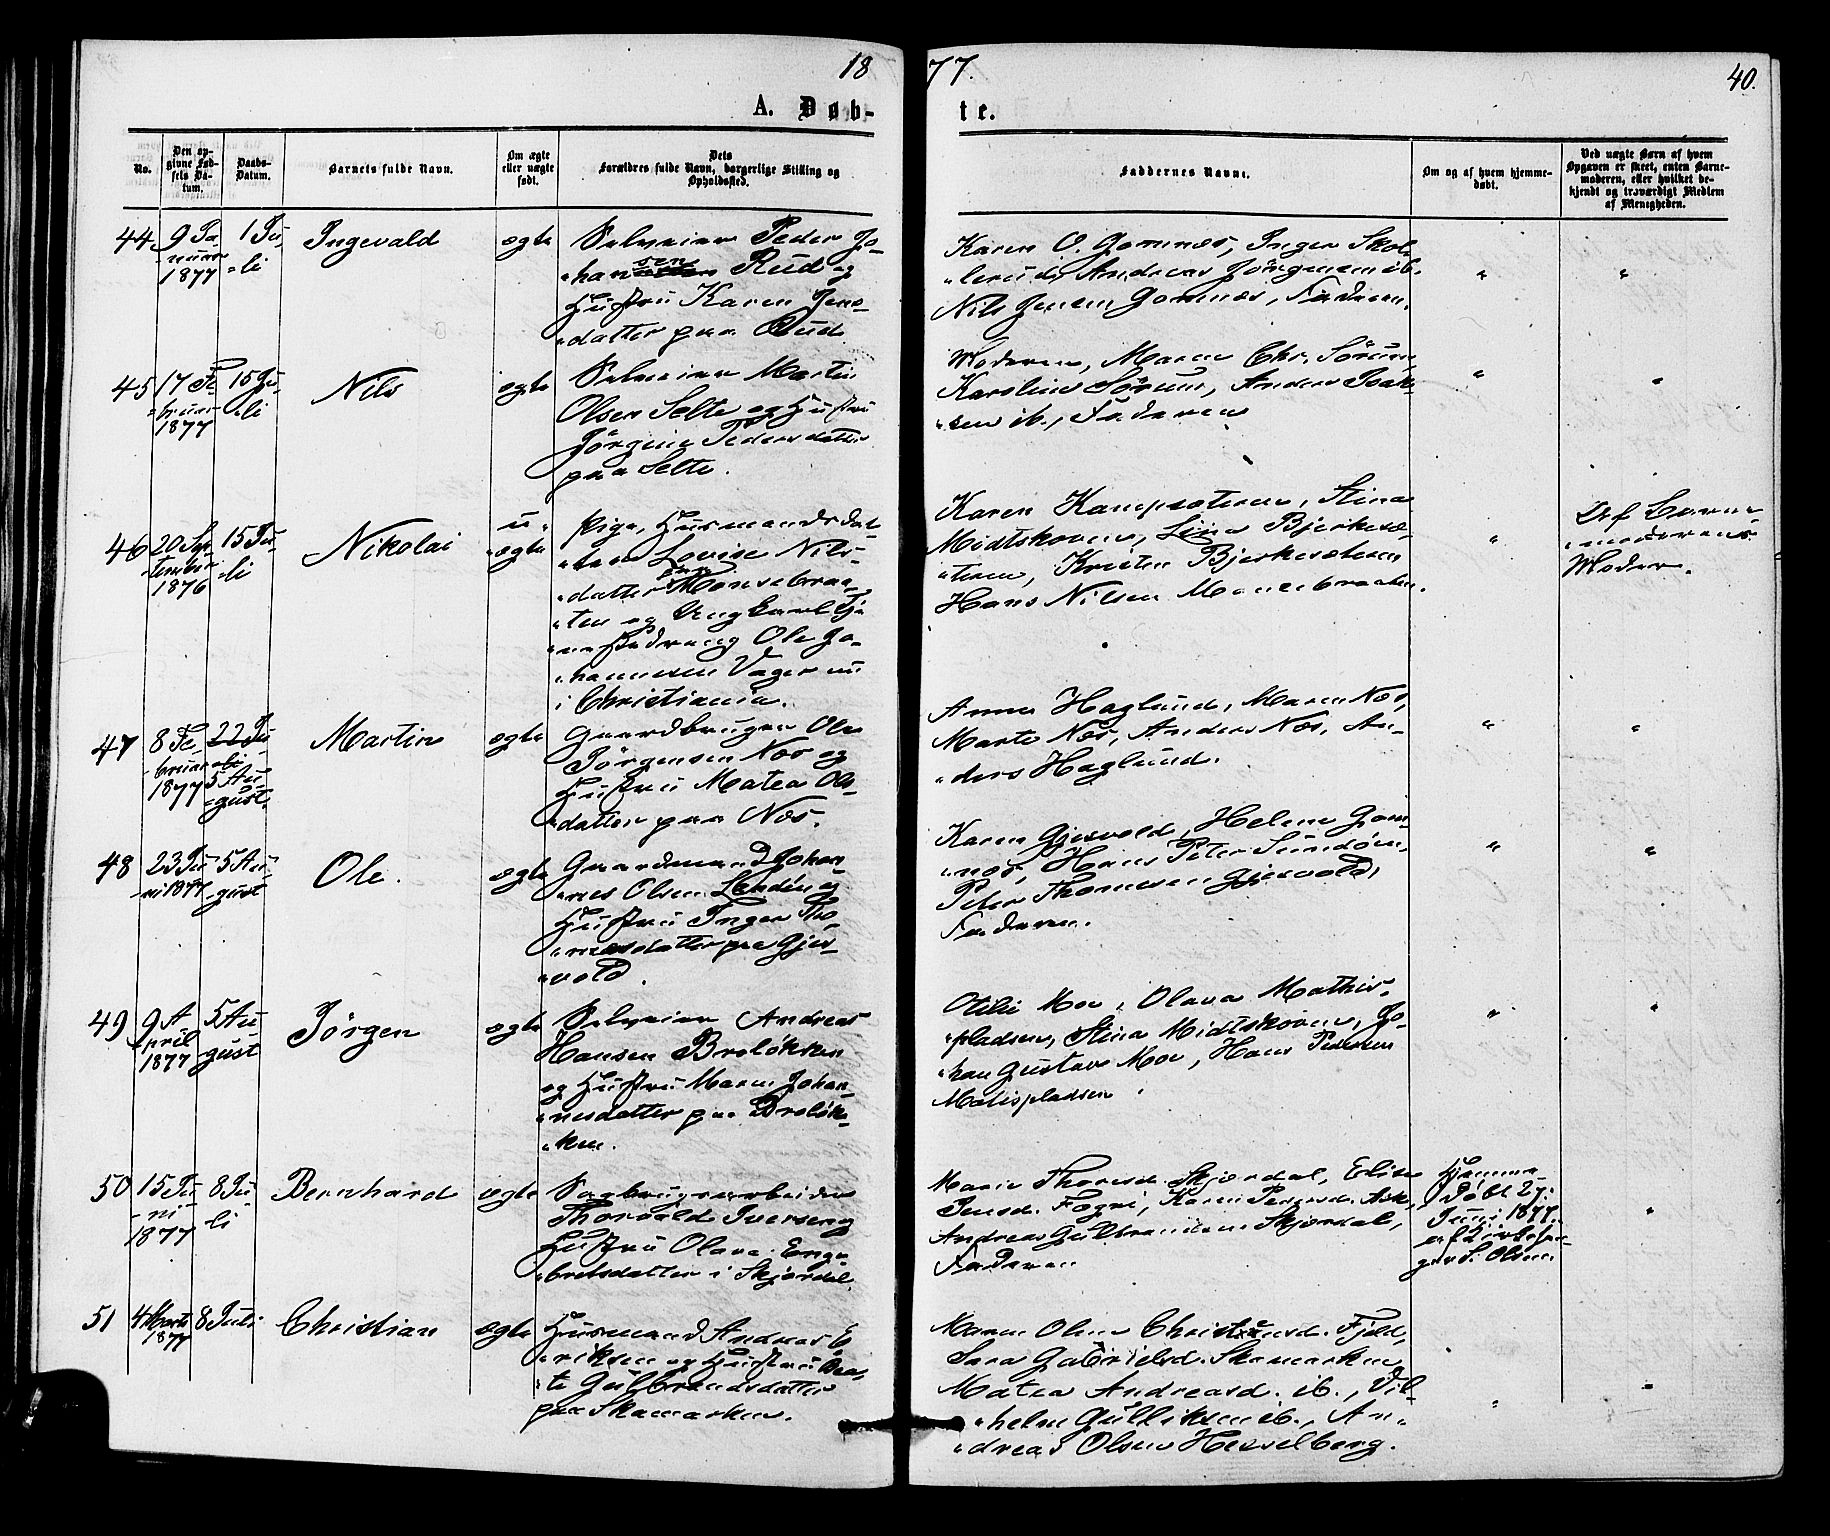 18
77.
40.
A. Døb-
te.
No.
Den op-
givne Fød-
sels Da-
tum.
Daabs-
Datum.
Barnets fulde Navn.
Om ægte
eller uægte
født.
Dets
Forældres fulde Navn, borgerlige Stilling og
Opholdssted.
Faddernes Navne.
Om og af hvem hjemme-
døbt.
Ved uægte Børn af hvem
Opgaven er skeet, enten Barne-
moderen, eller hvilket be-
kjendt og troværdigt Medlem
af Menigheden.
44.
9 Ja-
nuar
1877
1 Ju-
li
Ingevald
ægte
Selveier Peder Jo-
hansen Rud og
Hustru Karen Jens-
datter paa Rud
Karen O. Gomnæs, Inger Skol-
lerud, Andreas Jörgensen ib.
Nils Jensen Gomnæs, Faderen.
"
"
45
17 Fe-
bruar
1877
15 Ju-
li
Nils
ægte
Selveier Martin
Olsen Selte og Hustru
Jörgine Pedersdatter
paa Selte.
Moderen, Maren Chr. Sörum,
Karoline Sörum, Anders Isak-
sen ib., Faderen
"
"
46
20 Sep-
tember
1876
15 Ju-
li
Nikolai
u-
ægte
Pige, Husmandsdat-
ter Lovise Nils-
datter Monsebraa-
ten og Ungkarl Tje-
nestedreng Ole Jo-
hannesen Vager nu
i Christiania.
Karen Kampesæteren, Stina
Midtskoven, Lina Bjerkesæ-
teren, Kristen Bjerkesæteren
Hans Nilsen Monsebraaten.
"
Af Barne-
moderens
Moder.
47
8 Fe-
bruar
1877
22 Ju-
li
5 Au-
gust.
Martin
ægte
Gaardbruger Ole
Jörgensen Næs og
Hustru Matea Ols-
datter paa Næs.
Anna Haglund, Maren Næs,
Marte Næs, Anders Næs, An-
ders Haglund.
"
"
48
23 Ju-
ni 1877
5 Au-
gust
Ole.
ægte
Gaardmand Johan-
nes Olsen Lenden og
Hustru Inger Tho-
mæsdatter paa Gjes-
vold.
Karen Gjesvold, Helene Gom-
næs, Hans Peter Sundöen,
Peter Thomesen Gjesvold,
Faderen.
"
"
49
9 A-
pril
1877
5 Au
gust
Jörgen
ægte
Selveier Andreas
Hansen Brolökken
og Hustru Maren Johan-
nesdatter paa Brolök-
ken.
Otilie Moe, Olava Mathis-
pladsen, Stina Midtskoven, Jo-
han Gustavs Moe, Hans Pedersen
Matispladsen.
"
"
50
15 Ju-
ni
1877
8 Ju
li
Bernhard
ægte
Sagbrugsarbeider
Thorvald Iversen og
Hustru Olava Enge-
bretsdatter i Skjærdal.
Marie Thoresd. Skjærdal, Elise
Jensd. Fagri, Karen Pedersd. Ask,
Andreas Gulbrandsen Skjærdal,
Faderen
Hjemme-
döbt 27.
Juni 1877
S. Olsen.
"
51
4 Marts
1877
8 Juli
Christian
ægte
Husmand Andreas E-
riksen og Hustru Bea-
te Gulbrandsdatter
paa Skamarken.
Maren Oline Christensd. Fjeld,
Sara Gabrielsd. Skamarken
Matea Andreasd. ib., Vil-
helm Gulliksen ib., An-
dreas Olsen Hesselberg.
"
"